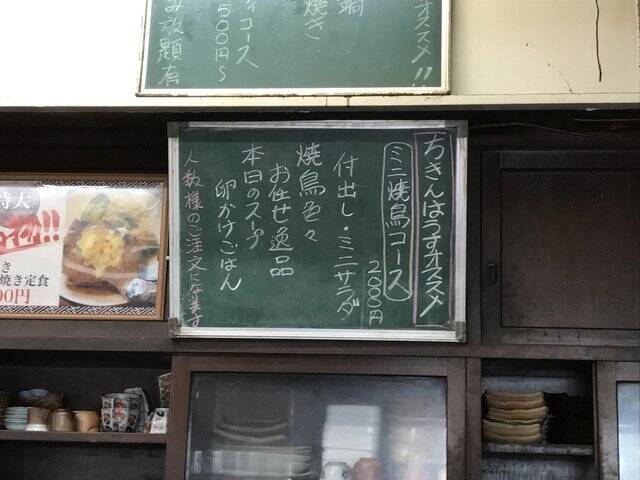 オススメ!!
鍋
焼き
コース
500円〜
み放題有
ちきんはうすオススメ
ミニ焼鳥コース
2000円
付出し・ミニサラダ
焼鳥色々
お任せ逸品
本日のスープ
卵かけごはん
人数様のご注文になります
特大
き
焼き定食
00円